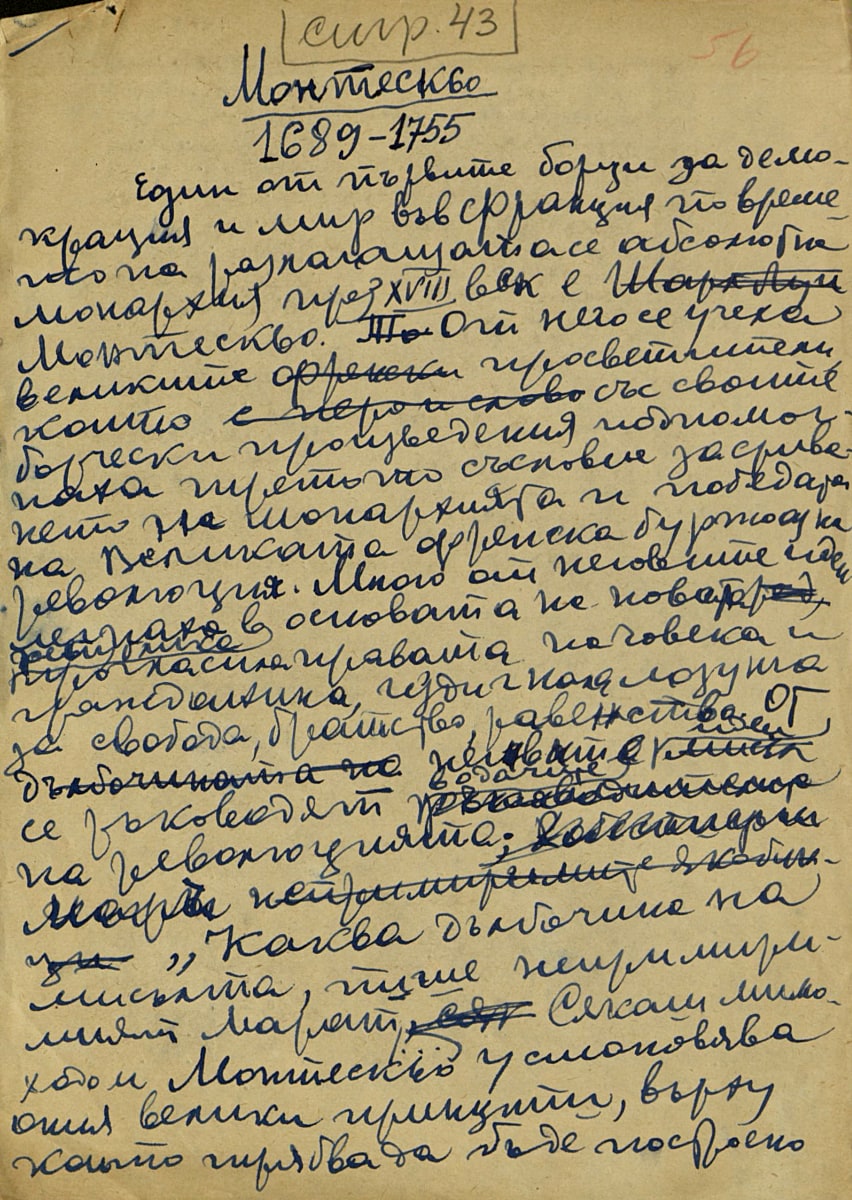 стр. 43
56
Монтескьо
1689-1755
Един от първите борци за демо-
крация и мир във Франция по време-
то на разлагащата се абсолютна
монархия през XVIII век е Шарл Луи
Монтескьо. То От него се учеха
великите френски просветители,
които с перо и слово със своите
борчески произведения подпомог-
наха третото съсловие за срива-
нето на монархията и победата
на Великата френска буржоазна
революция. Много от неговите идеи
легнаха в основата на новата ред,
република
прогласила правата на човека и
гражданина, издигнала лозунга
за свобода, братство, равенство. От
дълбочината на неговите мисли
идеи
се ръководят ръководителите
водачите
на революцията; Робеспиери
Марат непримиримите якобин-
ци „Каква дълбочина на
мисълта, пише непримири-
мият Марат, Сякаш мимо-
ходом Монтескьо установява
ония велики принципи, върху
които трябва да бъде построено